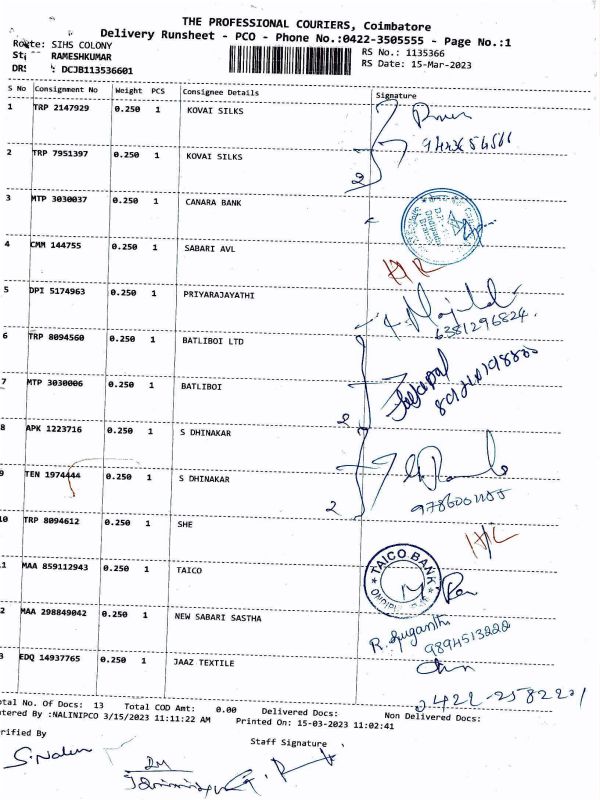 THE PROFESSIONAL COURIERS, Coimbatore
Delivery Runsheet - PCO - Phone No.:0422-3505555 - Page No.:1
Route: SIHS COLONY
RS No.: 1135366
RAMESHKUMAR
RS Date: 15-Mar-2023
: DCJB113536601
S No Consignment No Weight PCS Consignee Details Signature
1 TRP 2147929 0.250 1 KOVAI SILKS
2 TRP 7951397 0.250 1 KOVAI SILKS
2
3 MTP 3030037 0.250 1 CANARA BANK
4 CMM 144755 0.250 1 SABARI AVL
5 DPI 5174963 0.250 1 PRIYARAJAYATHI
6381296824
6 TRP 8094560 0.250 1 BATLIBOI LTD
7 MTP 3030006 0.250 1 BATLIBOI
2
8 APK 1223716 0.250 1 S DHINAKAR
9 TEN 1974444 0.250 1 S DHINAKAR
2
10 TRP 8094612 0.250 1 SHE
TAICO BANK
11 MAA 859112943 0.250 1 TAICO
12 MAA 298849042 0.250 1 NEW SABARI SASTHA
R. Suganthi
9894513222
13 EDQ 14937765 0.250 1 JAAZ TEXTILE
0422-2582201
Total No. Of Docs: 13 Total COD Amt: 0.00 Delivered Docs: Non Delivered Docs:
Entered By :NALINIPCO 3/15/2023 11:11:22 AM Printed On: 15-03-2023 11:02:41
Verified By Staff Signature
S. Nalini